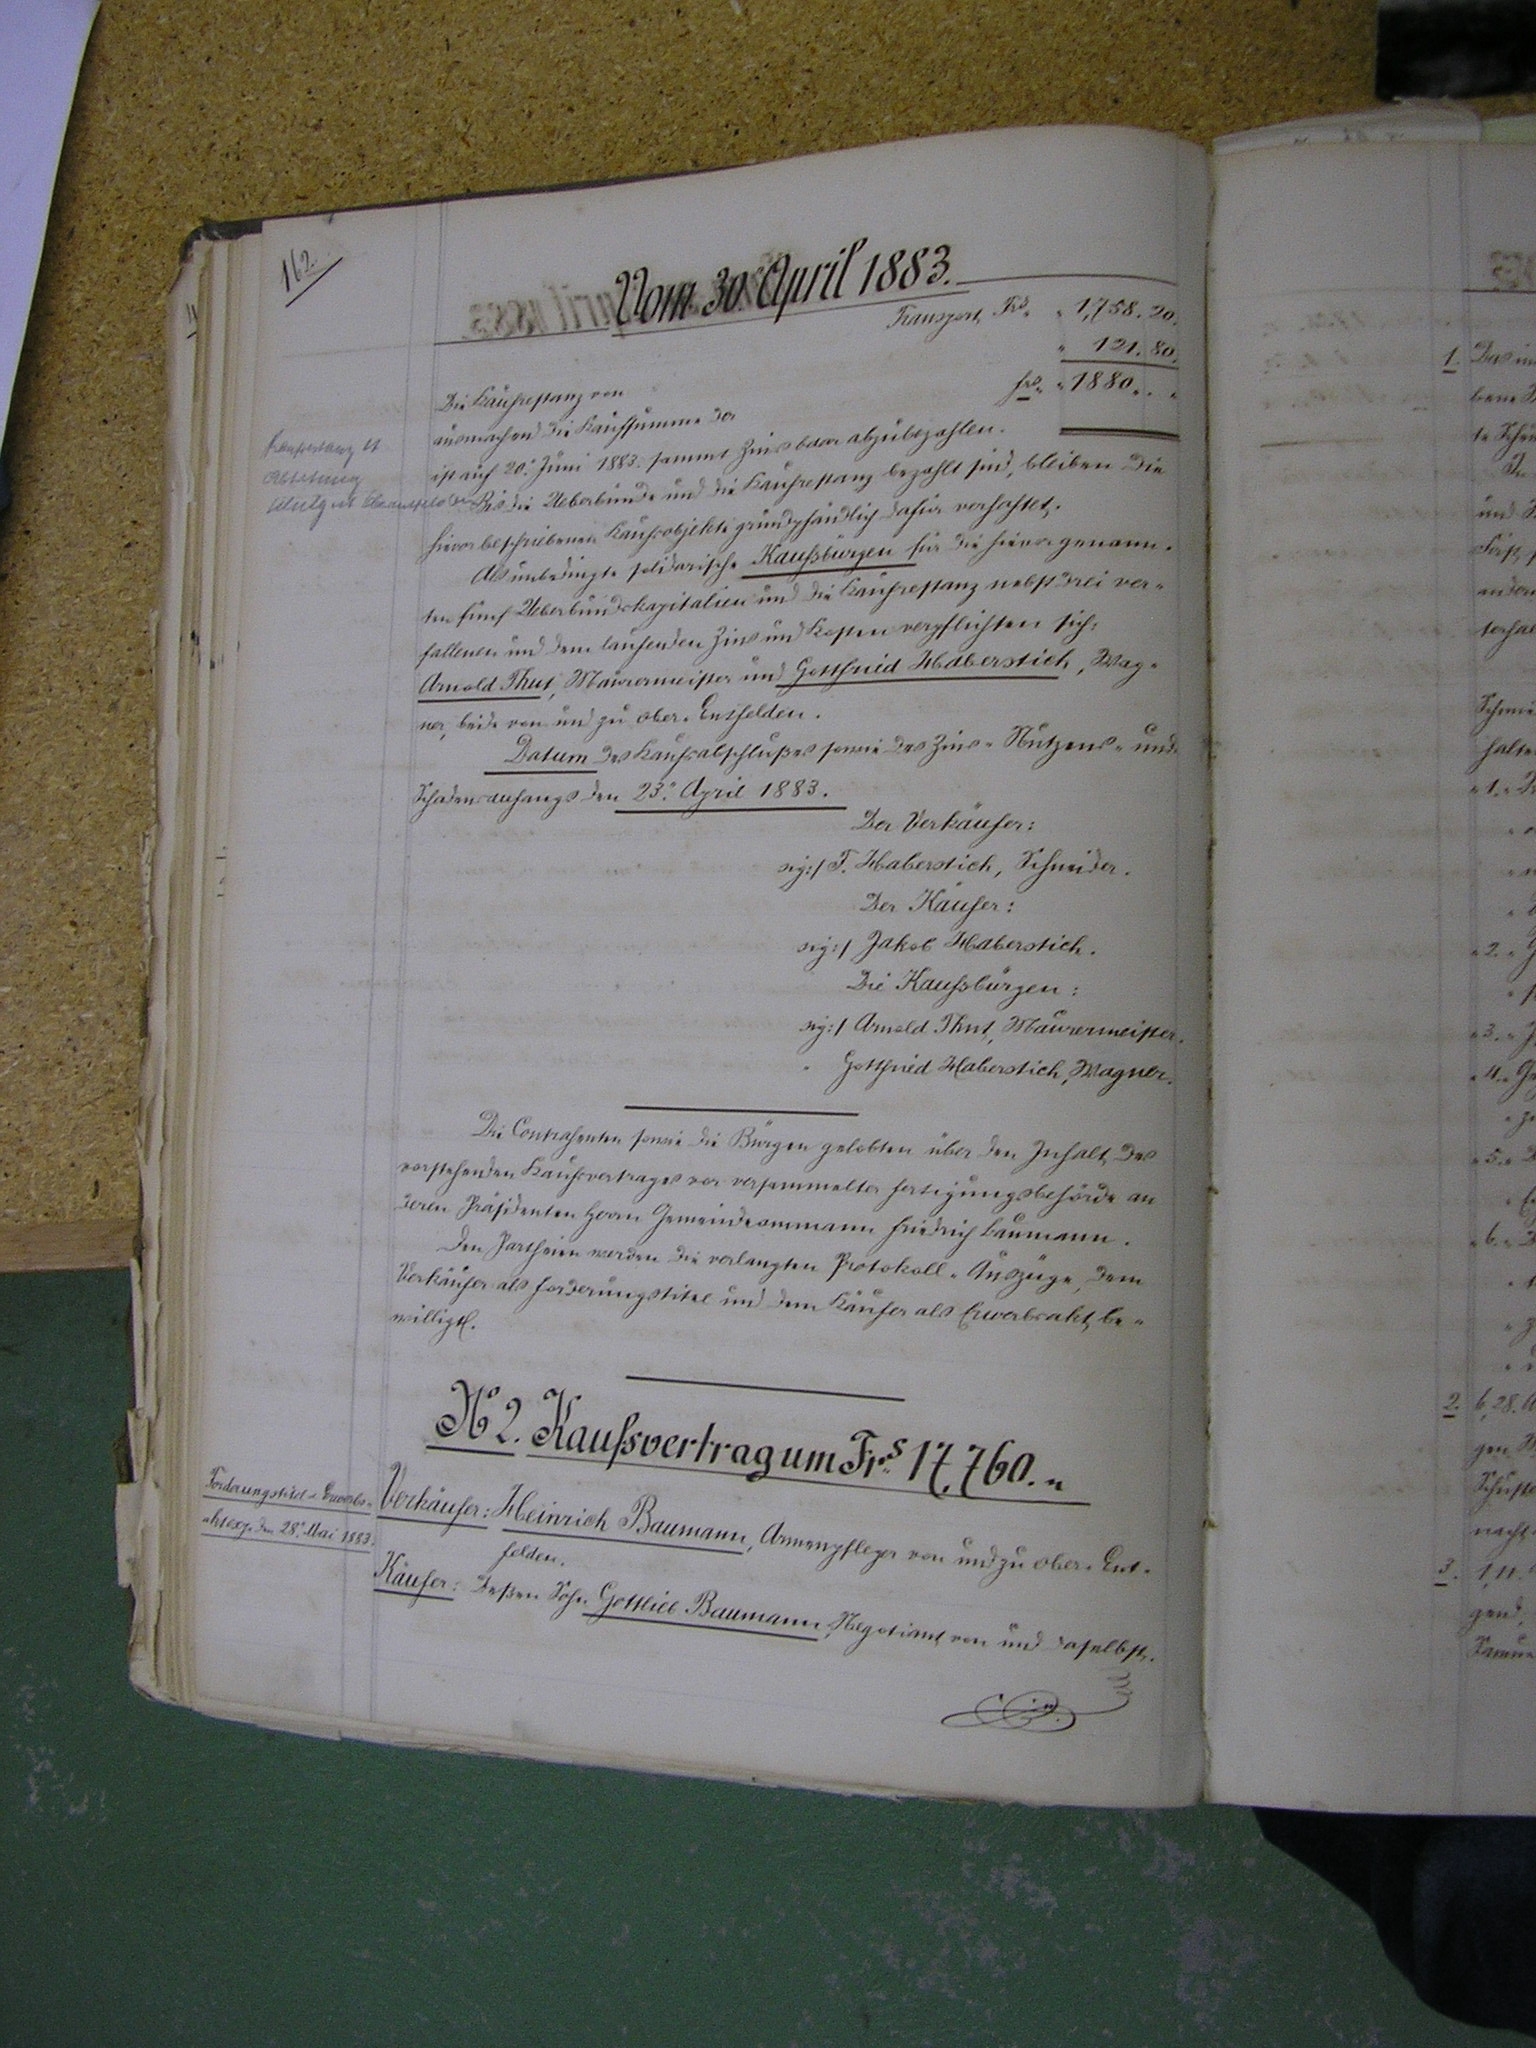 162.
Vom 30. April 1883.
Transport Frs. " 1,758. 20.
Die Kaufrestanz von " 121. 80.
ausmachend die Kaufsumme der frs. " 1880. . "
ist auf 20. Juni 1883. sammt Zins baar abzubezahlen.
Bis die Ueberbünde und die Kaufrestanz bezahlt sind, bleiben die
hievor beschriebenen Kaufsobjekte grundpfändlich dafür verhaftet.
Als unbedingte solidarische Kaufsbürgen für die hievor genann-
ten fünf Ueberbundskapitalien und die Kaufrestanz nebst drei ver-
fallenen und dem laufenden Zins und Kosten verpflichten sich:
Arnold Thut, Maurermeister und Gottfried Haberstich, Wag-
ner, beide von und zu Ober-Entfelden.
Datum des Kaufsabschlußes sowie des Zins- Nutzens- und
Schadensanfangs den 23. April 1883.
Der Verkäufer:
sig:/ F. Haberstich, Schneider.
Der Käufer:
sig:/ Jakob Haberstich.
Die Kaufsbürgen:
sig:/ Arnold Thut, Maurermeister.
" Gottfried Haberstich, Wagner.
Die Contrahenten sowie die Bürgen gelobten über den Inhalt des
vorstehenden Kaufvertrages vor versammelter Fertigungsbehörde an
deren Präsidenten Herrn Gemeindeammann Friedrich Baumann.
Den Partheien werden die verlangten Protokoll-Auszüge, dem
Verkäufer als Forderungstitel und dem Käufer als Erwerbsakt be-
willigt.
No 2. Kaufsvertrag um Frs. 17,760. "
Forderungstitel & Erwerbs-
akt exp. den 28. Mai 1883.
Verkäufer: Heinrich Baumann, Armenpfleger von und zu Ober-Ent-
felden.
Käufer: Deßen Sohn Gottlieb Baumann, Negotiant von und daselbst.
1.
2.
3.